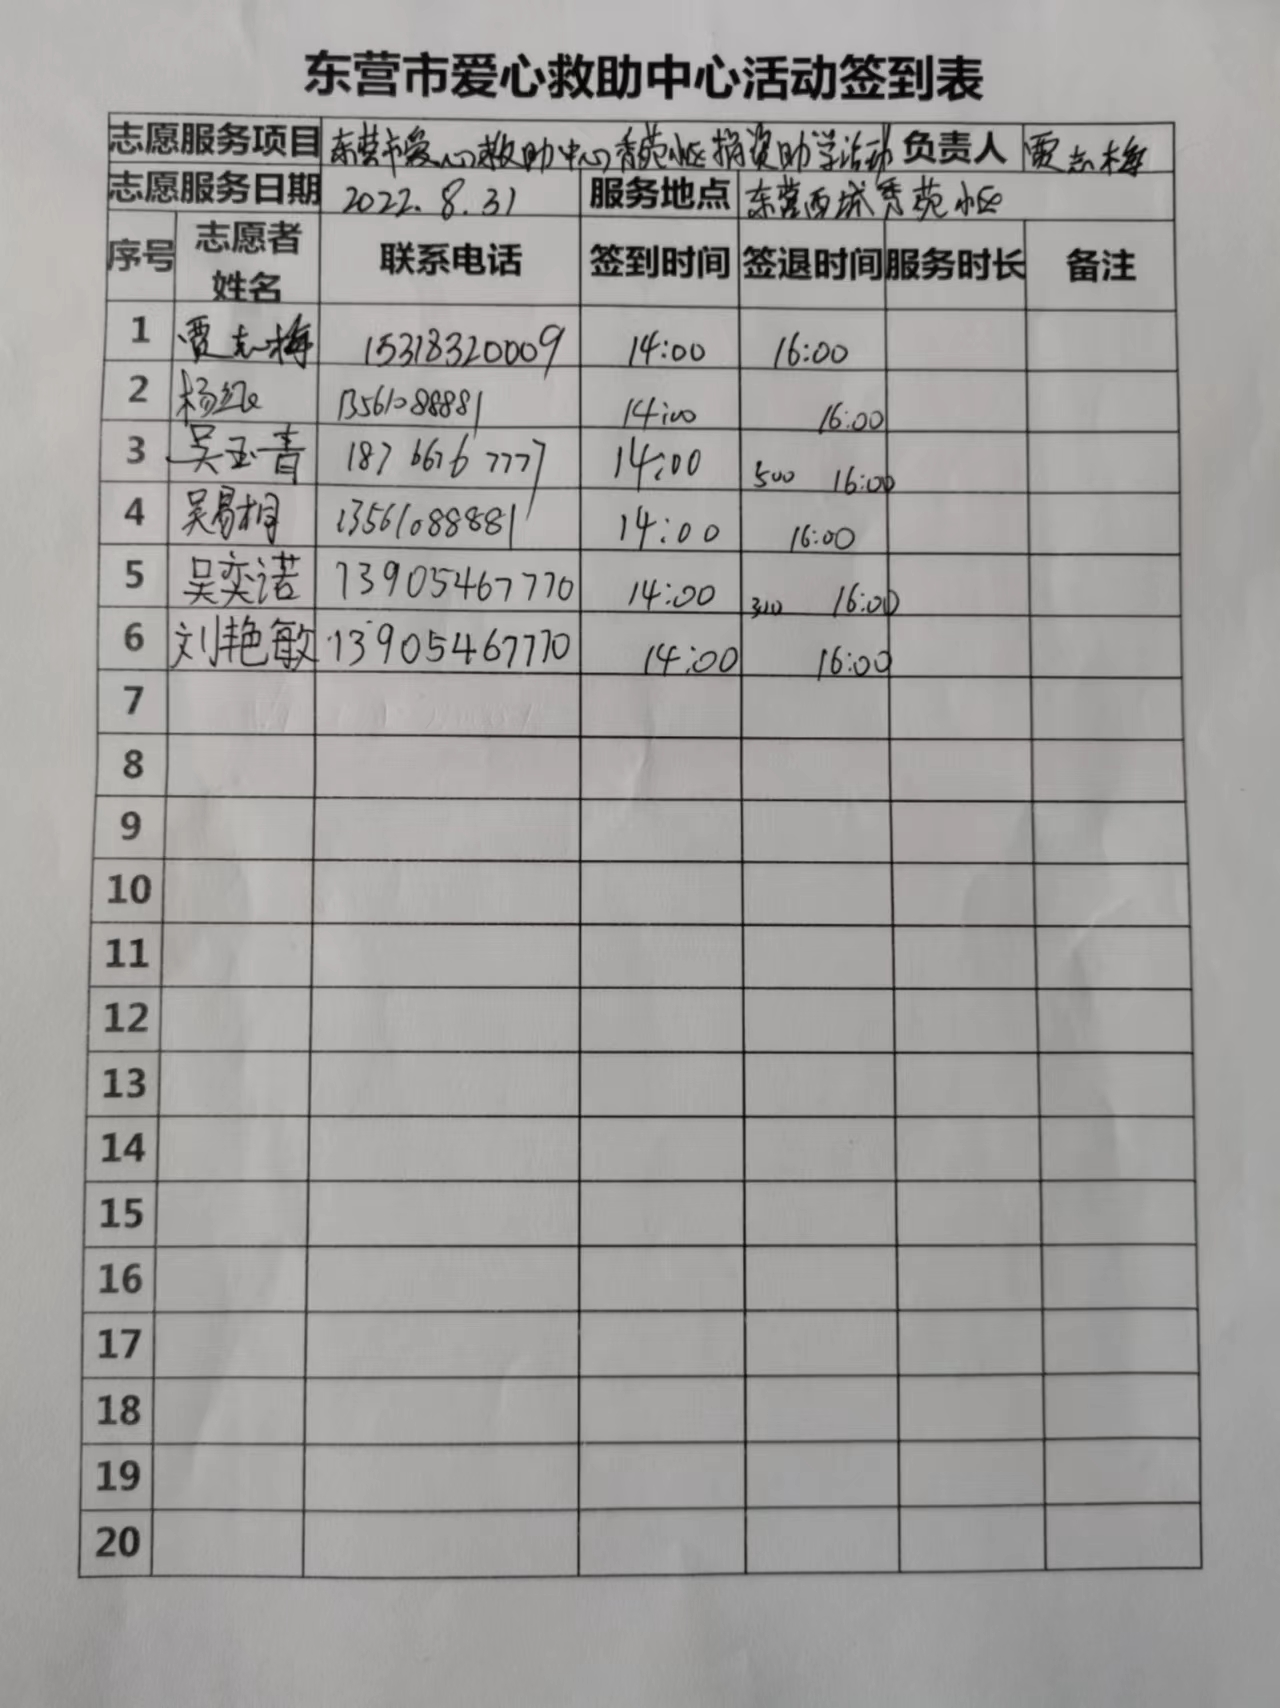 东营市爱心救助中心活动签到表
志愿服务项目 东营市爱心救助中心秀苑小区捐资助学活动 负责人 贾志梅
志愿服务日期 2022.8.31 服务地点 东营西城秀苑小区
序号 志愿者姓名 联系电话 签到时间 签退时间 服务时长 备注
1 贾志梅 15318320009 14:00 16:00
2 杨红 13561088881 14:00 16:00
3 吴玉青 18766767777 14:00 500 16:00
4 吴易桐 13561088881 14:00 16:00
5 吴奕诺 13905467770 14:00 310 16:00
6 刘艳敏 13905467770 14:00 16:00
7
8
9
10
11
12
13
14
15
16
17
18
19
20